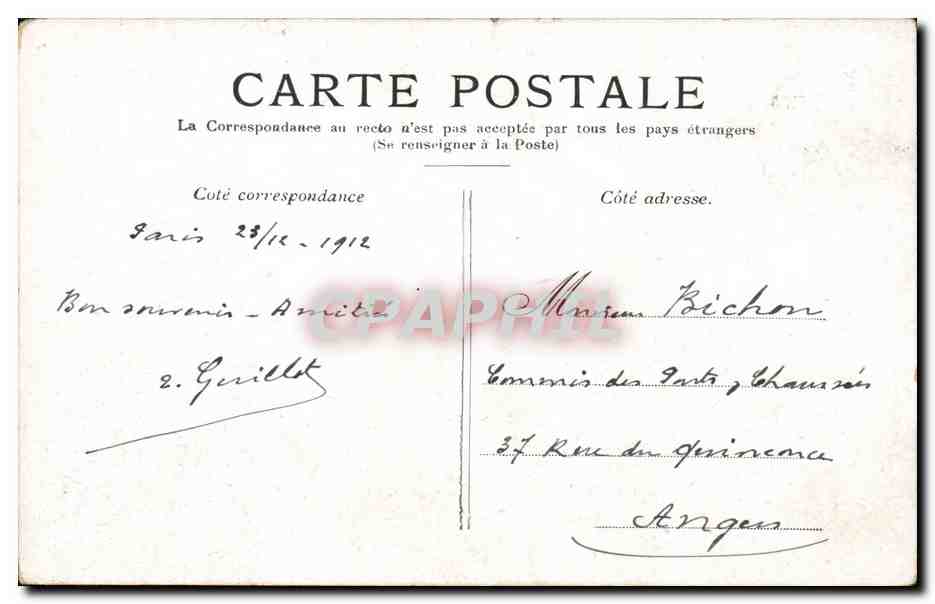 CARTE POSTALE
La Correspondance au recto n'est pas acceptée par tous les pays étrangers
(Se renseigner à la Poste)
Coté correspondance
Paris 23/12 - 1912
Bon souvenir - Amitiés
Guillot
Côté adresse.
Monsieur Bichon
Commis des Ponts, Chaussées
37 Rue du Quinconce
Angers
CPAPHIL